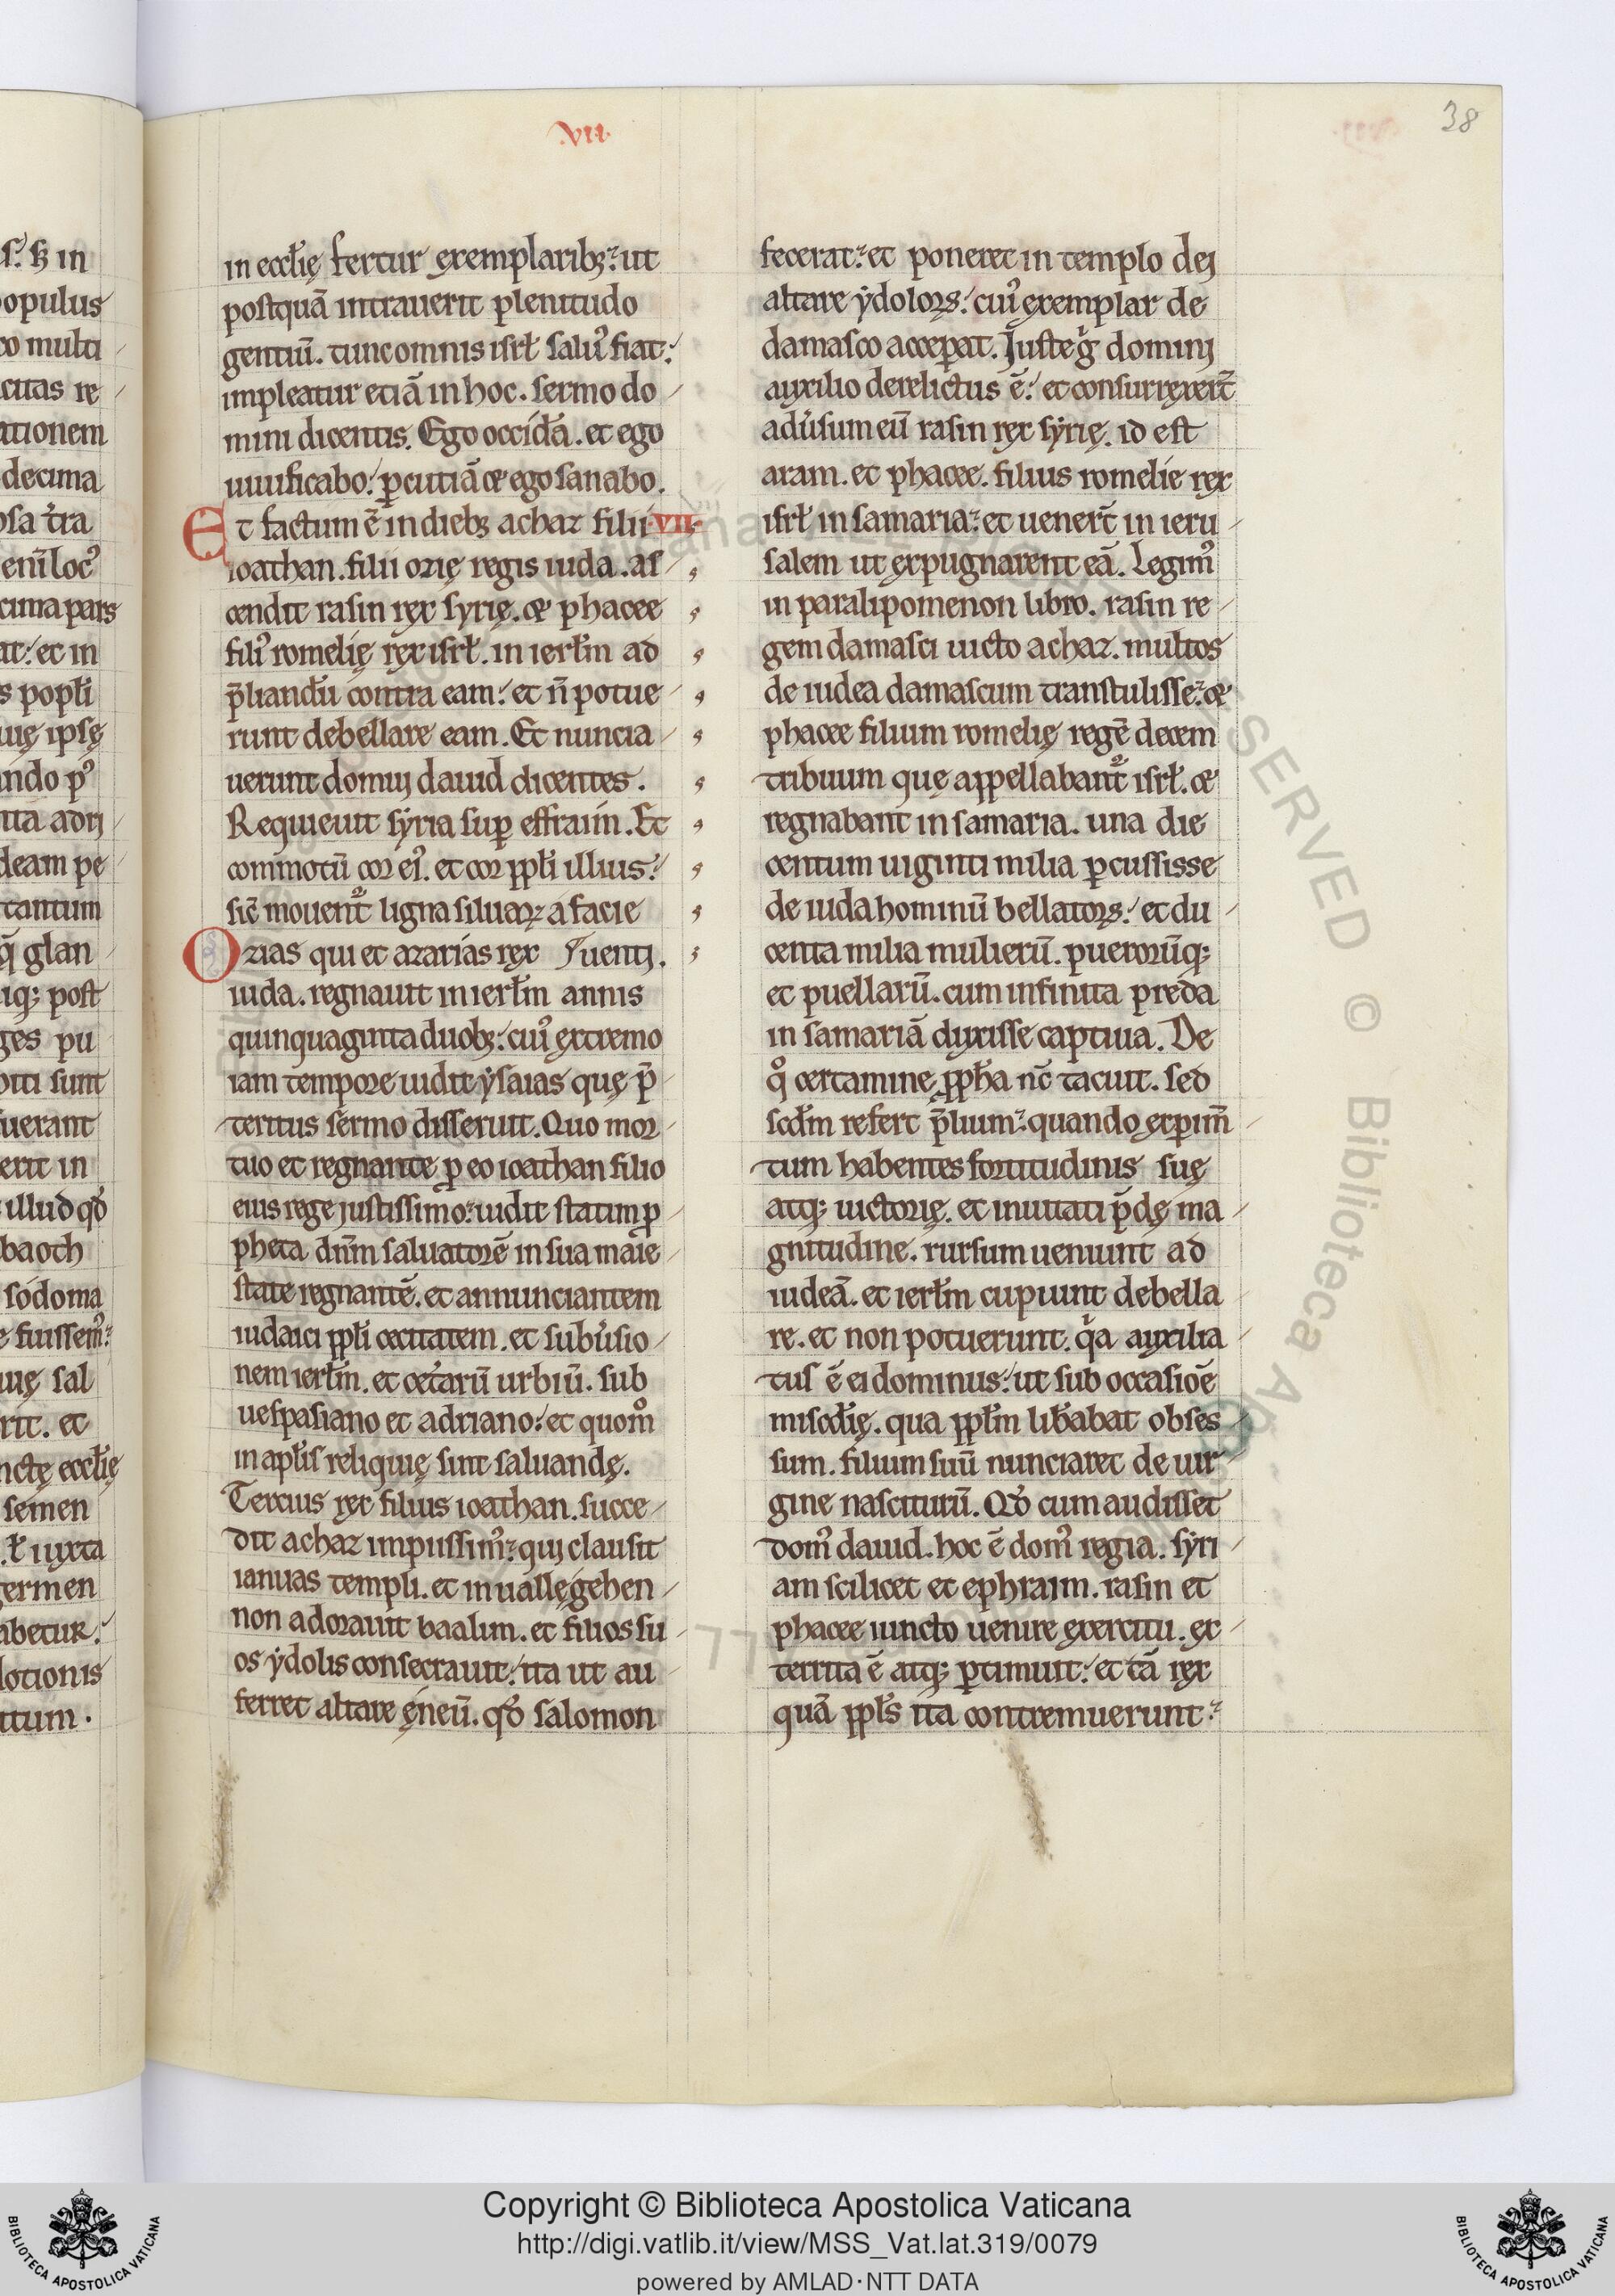 .VII.
38
in eccłię fertur exemplarib;: ut
postquā intrauerit plenitudo
gentiū. tunc omnis isrł salu᷒ fiat:
impleatur etiā in hoc. sermo do
mini dicentis. Ego occidā. et ego
uiuificabo: p̱cutiā & ego sanabo.
Et factum ē in dieb; achaz filii .VII.
ioathan. filii ozię regis iuda. as
cendit rasin rex syrię. & phacee
fili᷒ romelię rex isrł. in ierłm ad
p̄liandū contra eam: et n̄ potue
runt debellare eam. Et nuncia
uerunt domui dauid dicentes.
Requieuit syria sup̱ effraim. Et
commotū cor ei᷒. et cor ppłi illius:
sic̄ mouent᷑ ligna siluaꝝ a facie
Ozias qui et azarias rex uenti.
iuda. regnauit in ierłm annis
quinquaginta duob;: cui᷒ extremo
iam tempore uidit ysaias quę p̄
teritus sermo disseruit. Quo mor
tuo et regnante p̱ eo ioathan filio
eius rege justissimo: uidit statim ꝓ
pheta dn̄m saluatorē in sua maie
state regnantē. et annunciantem
iudaici ppłi cecitatem. et subu̓sio
nem ierłm. et cet̓arū urbiū. sub
uespasiano et adriano: et quom̊
in apłis reliquię sunt saluandę.
Tercius rex filius ioathan. succe
dit achaz impiissim᷒: qui clausit
ianuas templi. et in uallę gehen
non adorauit baalim. et filios su
os ydolis consecrauit: ita ut au
ferret altare ęneū. qđ salomon
fecerat: et poneret in templo dei
altare ydoloꝝ: cui᷒ exemplar de
damasco accep̱at. Juste g̓ domini
auxilio derelictus ē: et consurrexer̄t
adu̓sum eū rasin rex syrię. id est
aram. et phacee. filius romelie rex
isrł in samaria: et uener̄t in ieru
salem ut expugnarent eā. Legim᷒
in paralipomenon libro. rasin re
gem damasci uicto achaz. multos
de iudea damascum transtulisse: &
phacee filium romelię regē decem
tribuum quę appellabant᷑ isrł. &
regnabant in samaria. una die
centum uiginti milia p̱cussisse
de iuda hominū bellatoꝝ: et du
centa milia mulierū. puerorūq;
et puellarū. cum infinita preda
in samariā duxisse captiua. De
q̊ certamine ppħa nc̄ tacuit. sed
scdm refert p̄lium: quando exp̱im̄
tum habentes fortitudinis suę
atq; uictorię. et inuitati p̄dę ma
gnitudine. rursum ueniunt ad
iudeā. et ierłm cupiunt debella
re. et non potuerunt. q̓a auxilia
tus ē ei dominus: ut sub occasiōe
miscđię. qua ppłm lib̓abat obses
sum. filium suū nunciaret de uir
gine nasciturū. Qđ cum audisset
dom᷒ dauid. hoc ē dom᷒ regia. syri
am scilicet et ephraim. rasin et
phacee iuncto uenire exercitu. ex
territa ē atq; p̱timuit: et tā rex
quā ppłs ita contremuerunt:
Copyright © Biblioteca Apostolica Vaticana
http://digi.vatlib.it/view/MSS_Vat.lat.319/0079
powered by AMLAD·NTT DATA